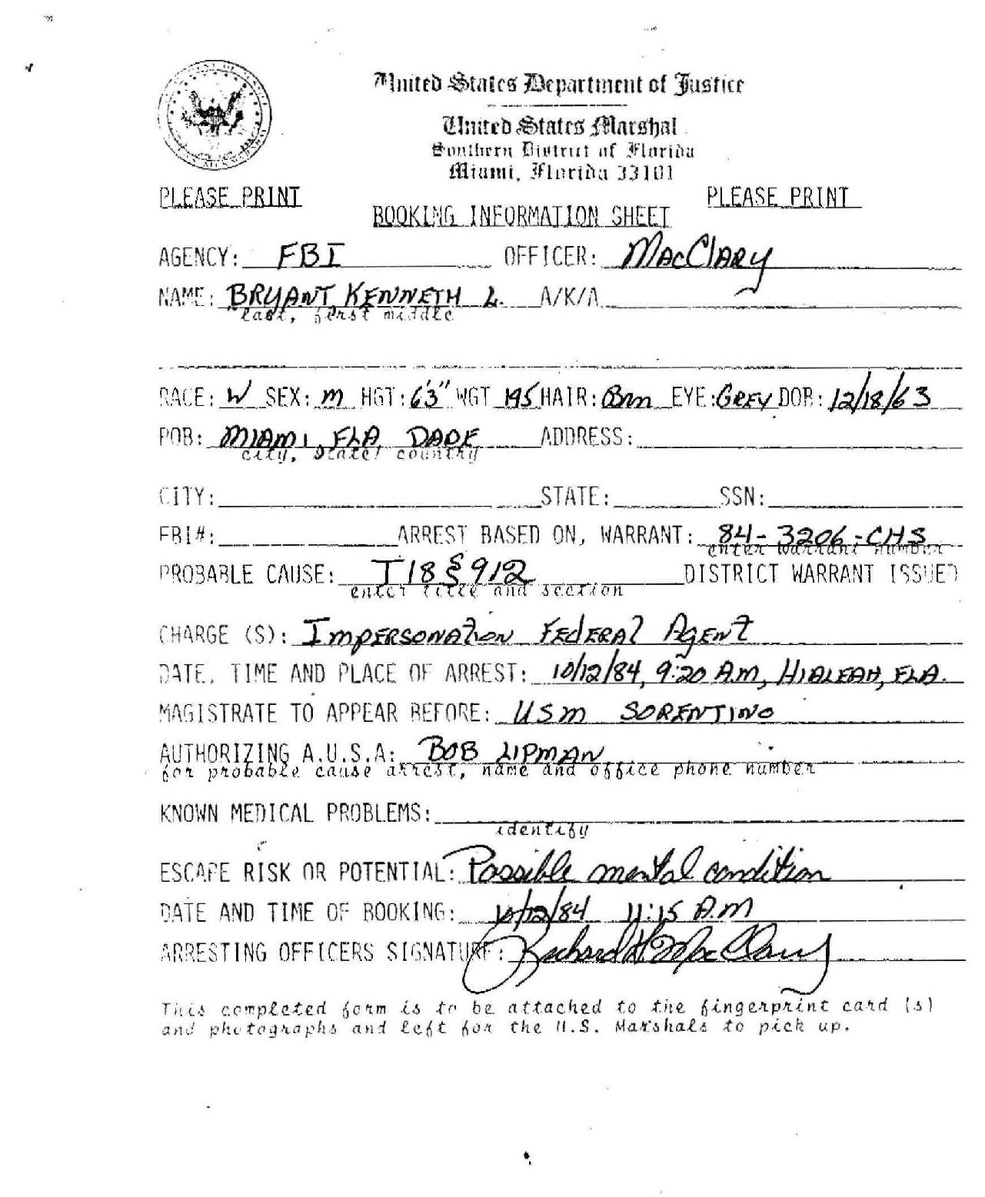 United States Department of Justice
United States Marshal
Southern District of Florida
Miami, Florida 33101
PLEASE PRINT PLEASE PRINT
BOOKING INFORMATION SHEET
AGENCY: FBI OFFICER: MacClary
NAME: BRYANT KENNETH L. A/K/A
last, first middle
RACE: W SEX: M HGT: 6'3" WGT 195 HAIR: Brn EYE: Grey DOB: 12/18/63
POB: MIAMI, FLA, DADE ADDRESS:
city, state, country
CITY: STATE: SSN:
FBI#: ARREST BASED ON, WARRANT: 84-3206-CHS
enter warrant number
PROBABLE CAUSE: T18 § 912 DISTRICT WARRANT ISSUED
enter title and section
CHARGE (S): Impersonation Federal Agent
DATE, TIME AND PLACE OF ARREST: 10/12/84, 9:20 A.M, HIALEAH, FLA.
MAGISTRATE TO APPEAR BEFORE: USM SORENTINO
AUTHORIZING A.U.S.A: BOB LIPMAN
for probable cause arrest, name and office phone number
KNOWN MEDICAL PROBLEMS:
identify
ESCAPE RISK OR POTENTIAL: Possible mental condition
DATE AND TIME OF BOOKING: 10/12/84 11:15 A.M
ARRESTING OFFICERS SIGNATURE: Richard H MacClary
This completed form is to be attached to the fingerprint card (s)
and photographs and left for the U.S. Marshals to pick up.